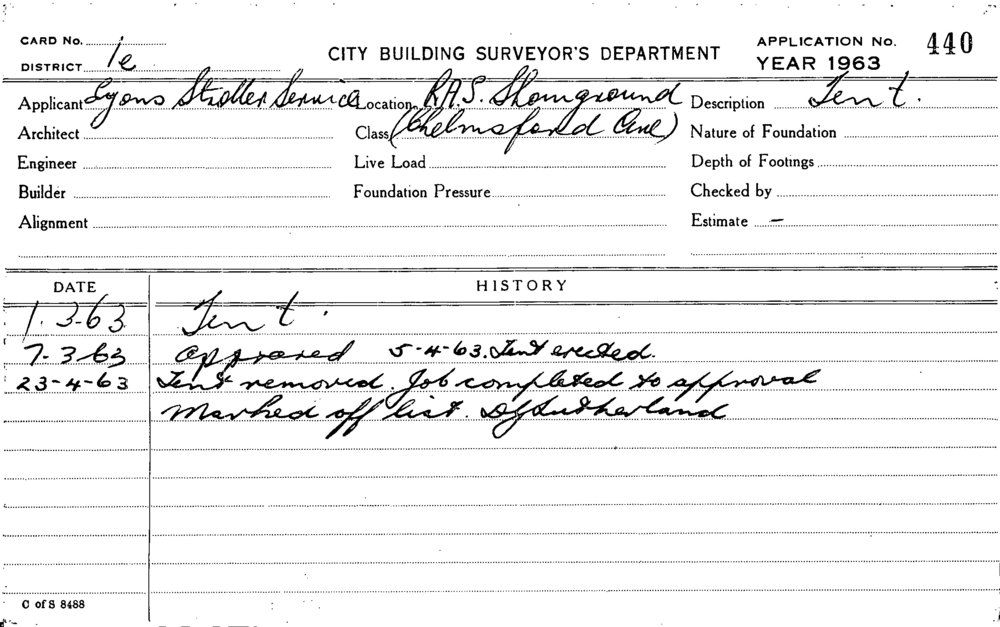 CARD No.
CITY BUILDING SURVEYOR'S DEPARTMENT
APPLICATION No. 440
DISTRICT 1e
YEAR 1963
Applicant Lyons Stroller Service Location R.A.S. Showground Description Tent.
Architect Class (Chelmsford Ave) Nature of Foundation
Engineer Live Load Depth of Footings
Builder Foundation Pressure Checked by
Alignment Estimate —
DATE HISTORY
1.3.63 Tent.
7-3-63 approved 5-4-63. Tent erected.
23-4-63 Tent removed. Job completed to approval
Marked off list. DJ Sutherland
C of S 8488